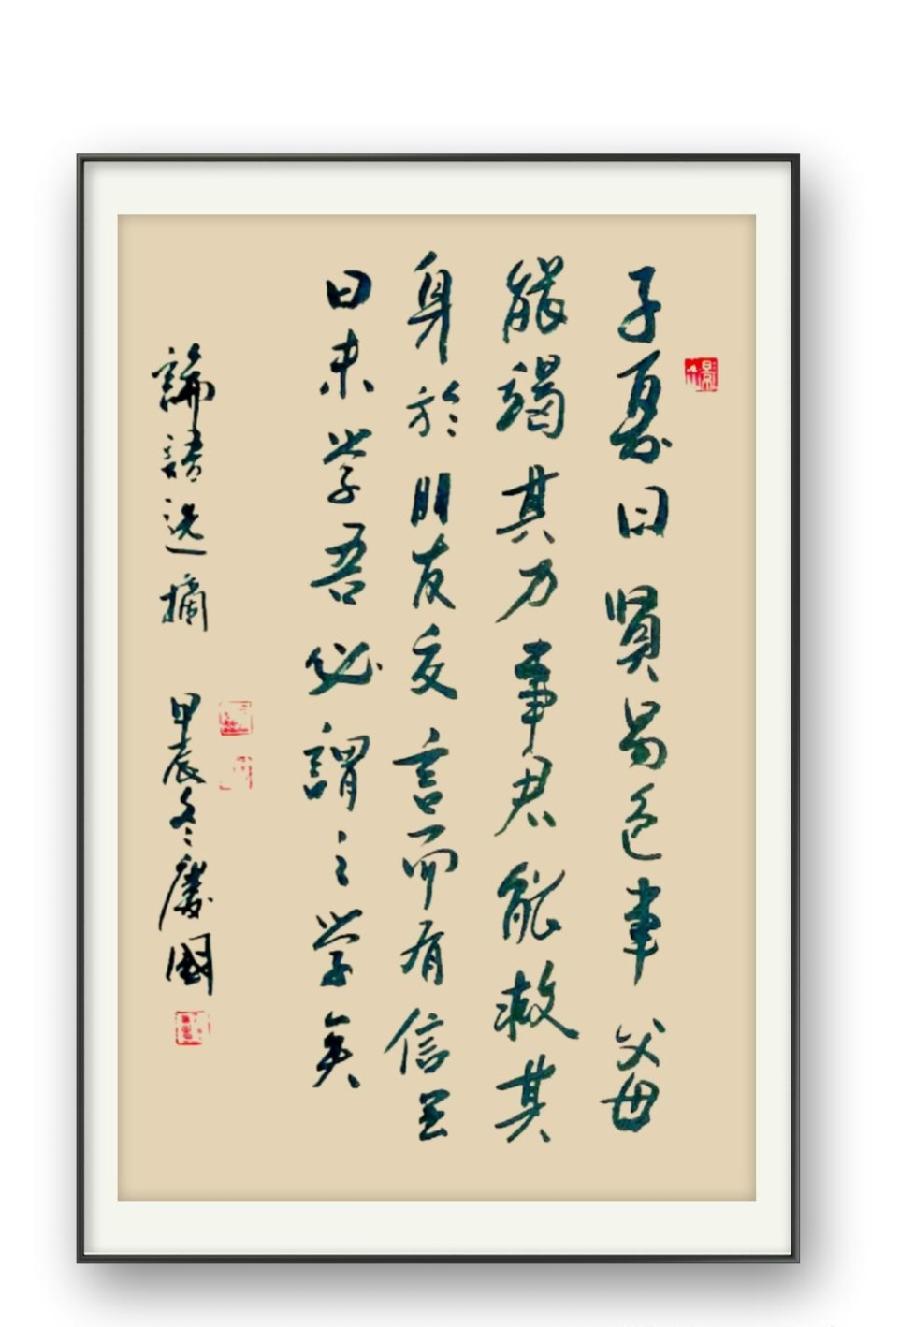 子夏曰賢易色事父母
能竭其力事君能救其
身於朋友交言而有信虽
曰未学吾必謂之学矣
論語选摘
甲辰冬慶國